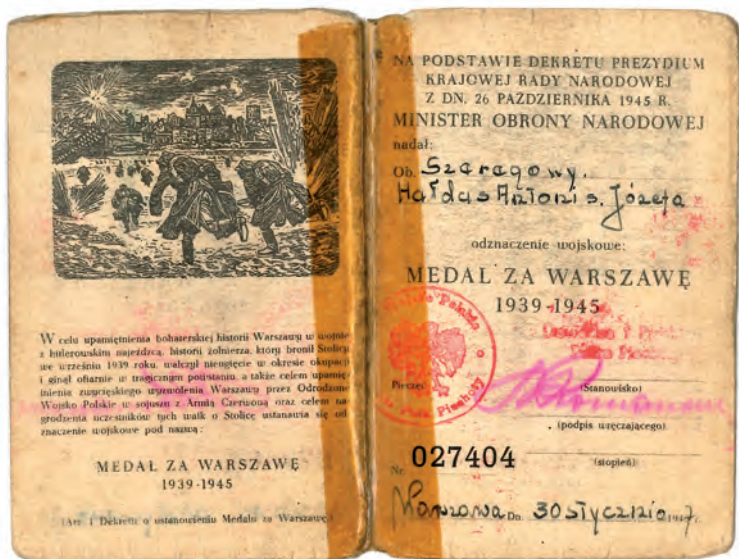 W celu upamiętnienia bohaterskiej historii Warszawy w wojnie
z hitlerowskim najeźdzcą, historii żołnierza, który bronił Stolicy
we wrześniu 1939 roku, walczył nieugięcie w okresie okupacji
i ginął ofiarnie w tragicznym powstaniu, a także celem upamięt-
nienia zwycięskiego wyzwolenia Warszawy przez Odrodzone
Wojsko Polskie w sojuszu z Armią Czerwoną oraz celem na-
grodzenia uczestników tych walk o Stolicę ustanawia się od-
znaczenie wojskowe pod nazwą:
MEDAL ZA WARSZAWĘ
1939-1945
(Art. 1 Dekretu o ustanowieniu Medalu za Warszawę.)
NA PODSTAWIE DEKRETU PREZYDIUM
KRAJOWEJ RADY NARODOWEJ
Z DN. 26 PAŹDZIERNIKA 1945 R.
MINISTER OBRONY NARODOWEJ
nadał:
Ob. Szeregowy.
Hałdas Antoni s. Józefa
odznaczenie wojskowe:
MEDAL ZA WARSZAWĘ
1939-1945
Wojsko Polskie
Piechoty
Pieczęć
(Stanowisko)
(podpis wręczającego)
Nr. 027404
(stopień)
Dn. 30 stycznia 1947